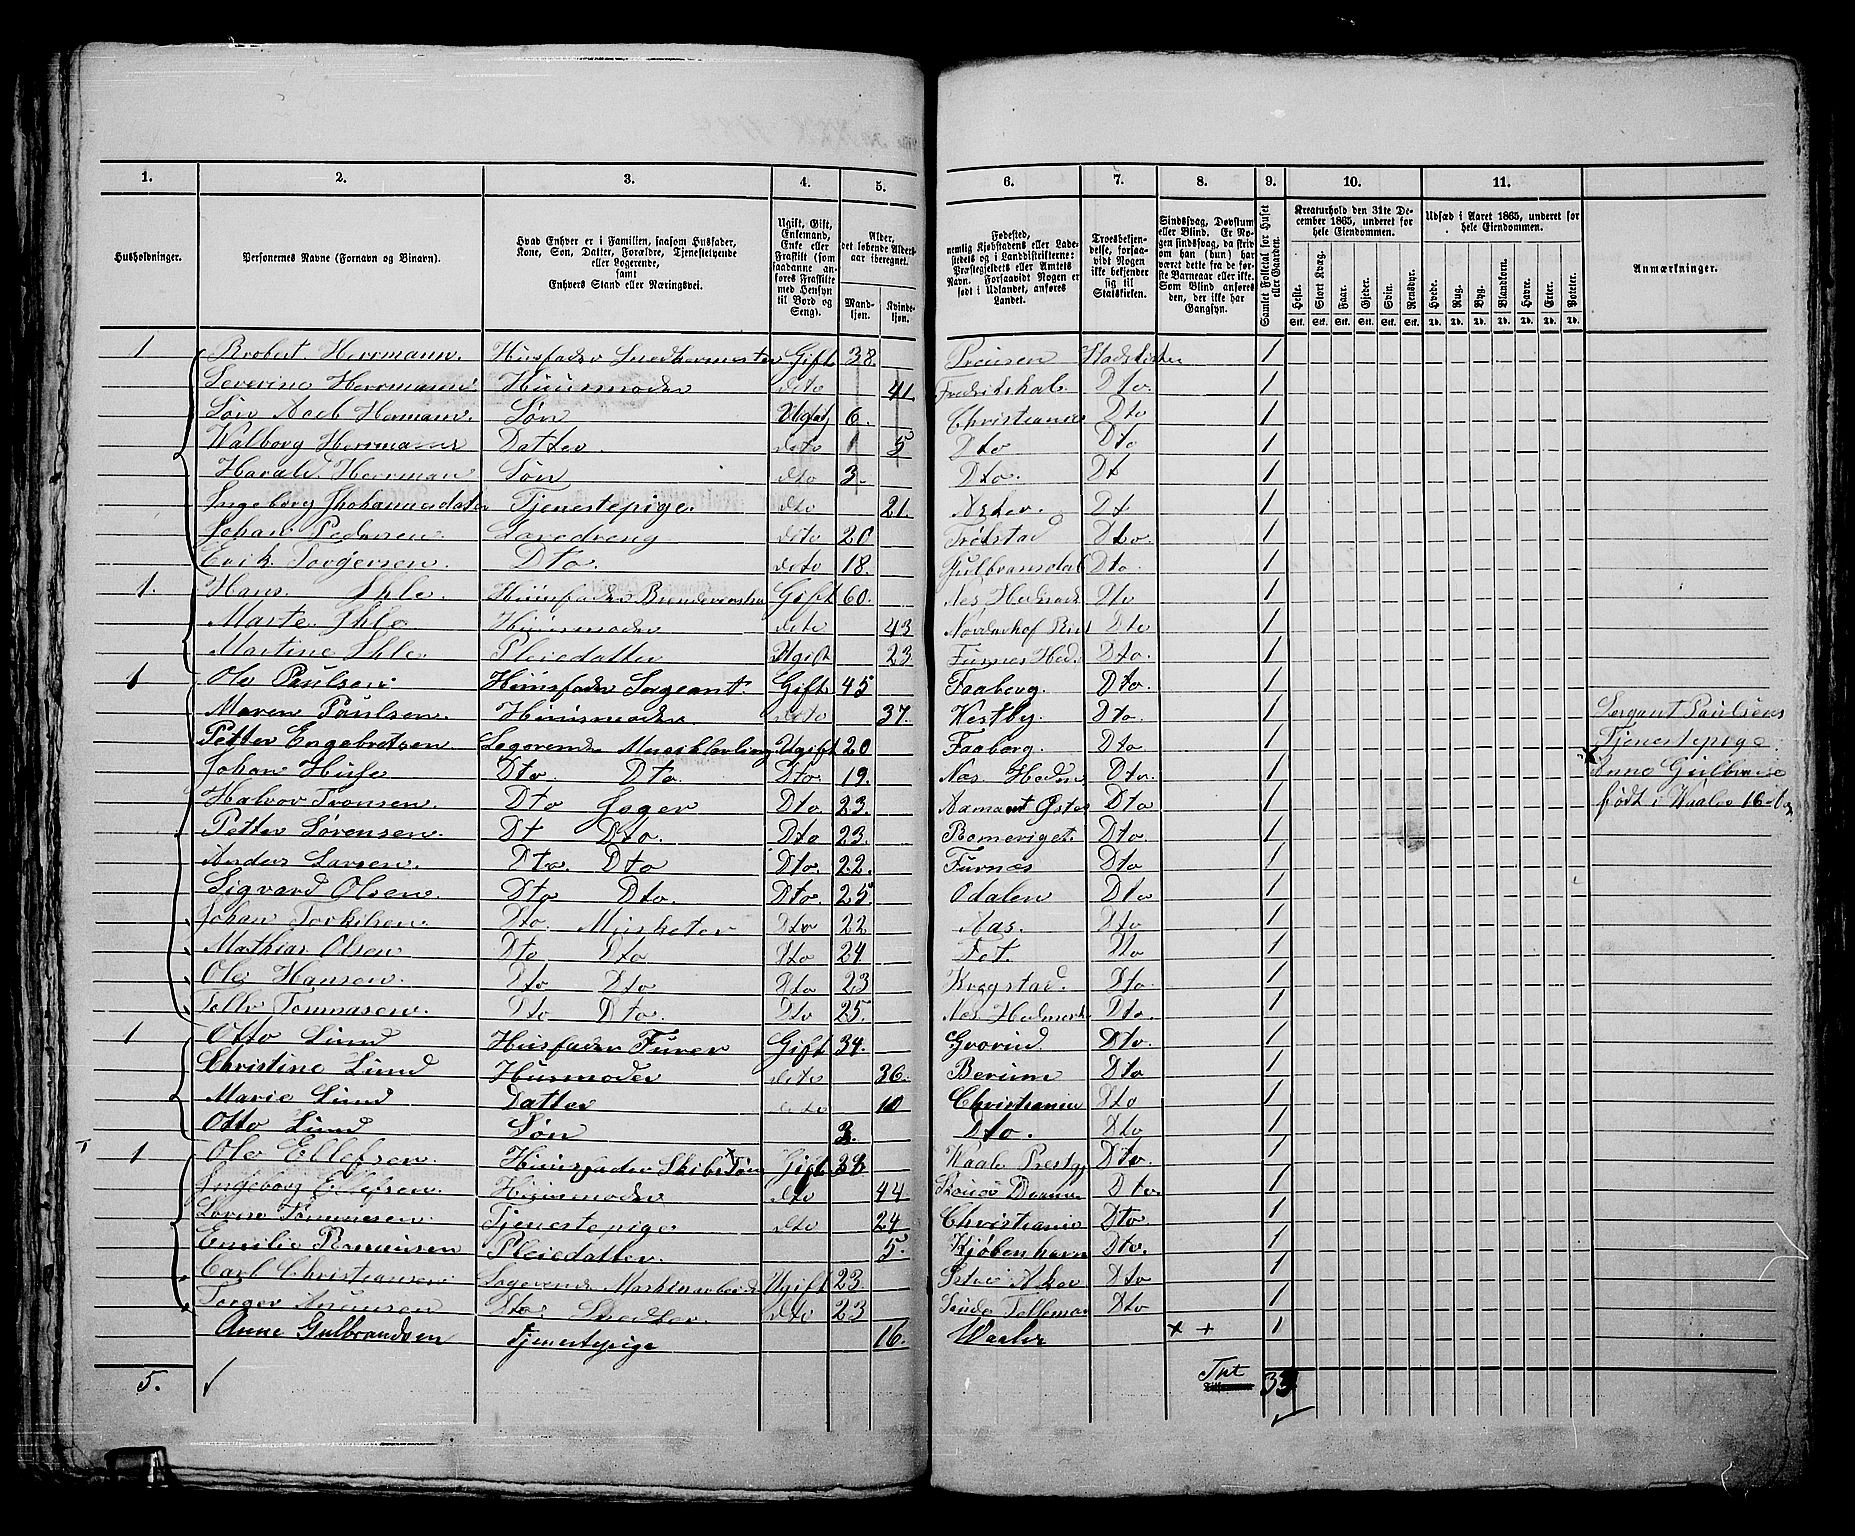 1. 2. 3. 4. 5. 6. 7. 8. 9. 10. 11.
Husholdninger.
Personernes Navne (Fornavn og Binavn).
Hvad Enhver er i Familien, saasom Husfader, Kone, Søn, Datter, Forældre, Tjenestetyende eller Logerende, samt Enhvers Stand eller Næringsvei.
Ugift, Gift, Enkemand, Enke eller Fraskilt (som saadanne anføres Fraskilte med Hensyn til Bord og Seng).
Alder, det løbende Alders-aar iberegnet.
Mandkjøn. Kvindekjøn.
Fødested, nemlig Kjøbstadens eller Ladestedets og i Landdistrikterne: Præstegjeldets eller Amtets Navn. Forsaavidt Nogen er født i Udlandet, anføres Landet.
Troesbekjendelse, forsaavidt Nogen ikke bekjender sig til Statskirken.
Sindssvag, Døvstum eller Blind. Er Nogen sindssvag, da skriv om han (hun) har været dette fra de første Barneaar eller ikke. Som Blind anføres den, der ikke har Gangsyn.
Samlet Folketal for Huset eller Gaarden.
Kreaturhold den 31te December 1865, underet for hele Eiendommen.
Heste. Stort Kvæg. Faar. Gjeder. Svin. Rensdyr.
Stk. Stk. Stk. Stk. Stk. Stk.
Udsæd i Aaret 1865, underet for hele Eiendommen.
Hvede. Rug. Byg. Blandkorn. Havre. Erter. Poteter.
Td. Td. Td. Td. Td. Td. Td.
Anmærkninger.
1 Robert Herrmann. Huusfader Snedkermester Gift 38. Preusen Stadskirken 1
Severine Herrmann Huusmoder deto 41. Fredrikshal. Dto. 1
Søn Axel Hermann. Søn Ugift 6. Christiania Dto 1
Walborg Herrmann Datter. deto 5 Dto Dto 1
Harald Herrman Søn dto 3. Dto. Dt 1
Ingeborg Johannesdater Tjenestepige. dto 21. Asker. Dt 1
Johan Pedersen Laredreng deto 20 Trøkstad Dto. 1
Erik Torgersen. Dto. deto 18. Gulbransdal Dto. 1
1. Hans Ihle. Huusfader Brændevins Gift 60. Nes Hedmark Dto 1
Marte Ihle Huusmoder deto 43 Norderhof Dto 1
Martine Ihle. Pleiedatter Ugift 23 Furnes Hed. Dto. 1
1 Ole Paulsen Huusfader Sergeant. Gift 45 Faaberg. Dto. 1
Maren Paulsen. Huusmoder deto 37. Vestby. Dto. 1 Sergant Paulsens
Petter Engebretsen Logerende Musiklærling Ugift 20 Faaberg. Dto. 1 Tjenestepige
Johan Huse Dto Dto. Dto. 19. Nes. Hedm Dto. 1 Anne Gulbran
Halvor Tronsen. Dto Jæger Dto 23. Aamont Øster Dto 1 født i Vaaler 16
Petter Sørensen. Dt Dto. Dto 23. Romeriget. Dto. 1
Anders Larsen. Dto. Dto Dto. 22. Furnes Dto 1
Sigvard Olsen. Dto Dto. Dto. 25. Odalen Dto 1
Johan Torkilsen. Dto. Musketer Dto 22 Aas. Dto 1
Mathias Olsen Dto Dto Dto 24 Fet. Dto 1
Ole Hansen. Dto Dto Dto 23 Kragstad. Dto. 1
Tommasen. Dto Dto. Dto 25. Nes Hedmark Dto. 1
1 Otto Lund Husfader Furer Gift 34. Grorud Dto. 1
Christine Lund Husmoder deto 36. Berum Dto 1
Marie Lund Datter deto 10 Christiania Dto 1
Otto Lund Søn 3. Dto. Dto 1
1 Ole Ellefsen Huusfader Skibs Gift 38 Vaale Prestg Dto. 1
Ingeborg Ellefsen. Huusmoder dto 44 Dramm Dto. 1
Lovise Tommesen Tjenestepige dto 24 Christiania Dto. 1
Emilie Rasmusen Pleiedatter. 5. Kjøbenhavn Dto. 1
Carl Christiansen Logerende Maskinarbeid Ugift 23 Aker Dto 1
Torger Dto. Smedker. dto 23 Tellemar Dto 1
Anne Gulbrandsen Tjenestepige 16. Vaaler × + 1
5. Tilsammen 33